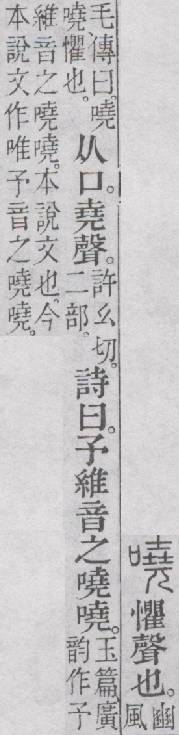 嘵懼聲也。豳風
毛傳曰。嘵
嘵懼也。
从口。堯聲。
許幺切。
二部。
詩曰。予維音之嘵嘵。
玉篇、廣
韵作予
維音之嘵嘵。本說文也。今
本說文作唯予音之嘵嘵。